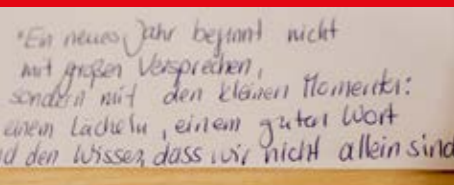 "Ein neues Jahr beginnt nicht
mit großen Versprechen,
sondern mit den kleinen Momenten:
einem Lächeln, einem guten Wort
nd den Wissen, dass wir nicht allein sind